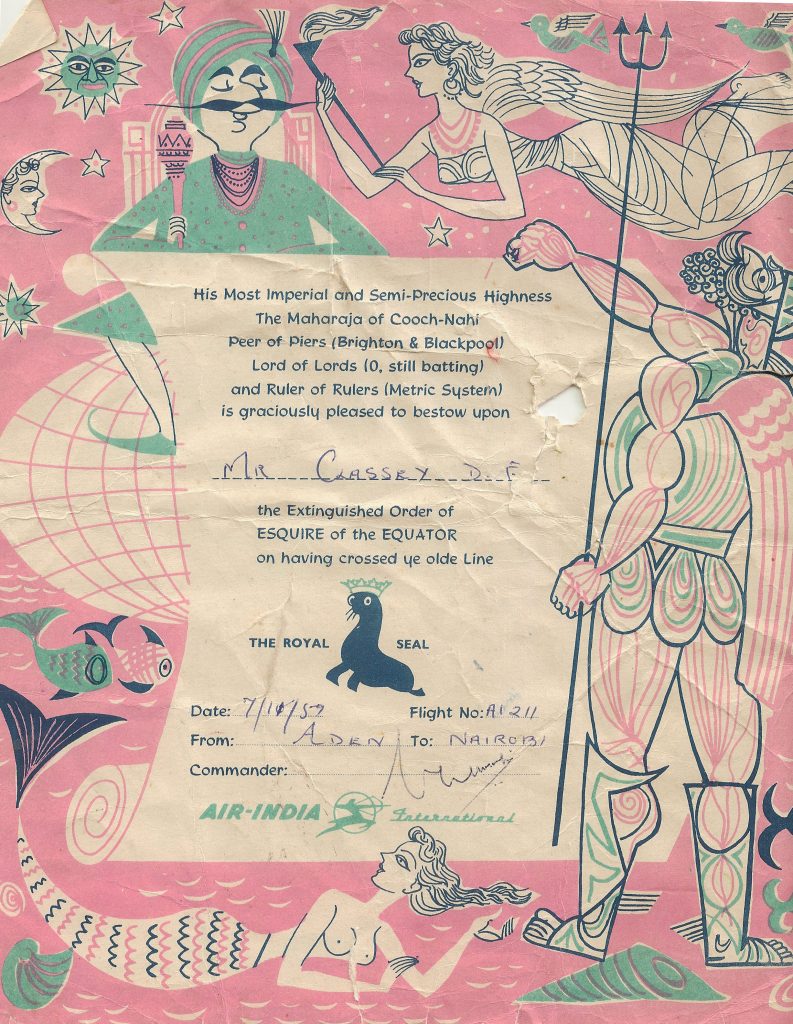 His Most Imperial and Semi-Precious Highness
The Maharaja of Cooch-Nahi
Peer of Piers (Brighton & Blackpool)
Lord of Lords (0, still batting)
and Ruler of Rulers (Metric System)
is graciously pleased to bestow upon
MR CLASSEY D. F.
the Extinguished Order of
ESQUIRE of the EQUATOR
on having crossed ye olde Line
THE ROYAL SEAL
Date: 7/10/57 Flight No: AI 211
From: ADEN To: NAIROBI
Commander:
AIR-INDIA International